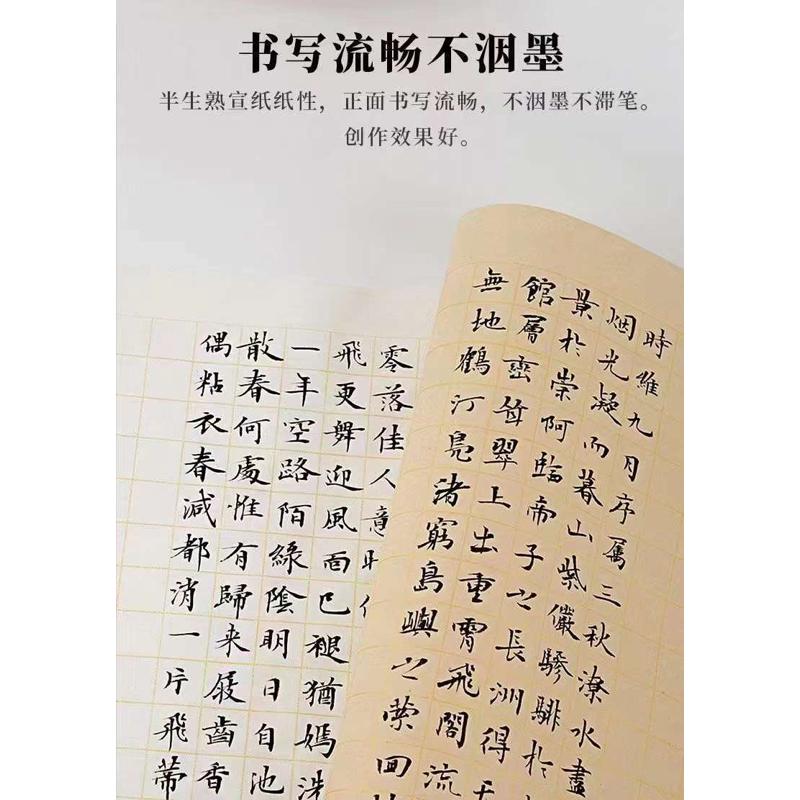 书写流畅不洇墨
半生熟宣纸纸性，正面书写流畅，不洇墨不滞笔。
创作效果好。
時維九月序属三秋潦水盡
烟光凝而暮山紫儼驂騑於
景於崇阿臨帝子之長洲得
館層巒聳翠上出重霄飛閣流
無地鶴汀鳧渚窮島嶼之縈回
零落佳人意
飛更舞迎風面已褪猶嫣洗
一年空路陌綠陰明日自池
散春何處惟有歸来屐齒香
偶粘衣春減都消一片飛蒂